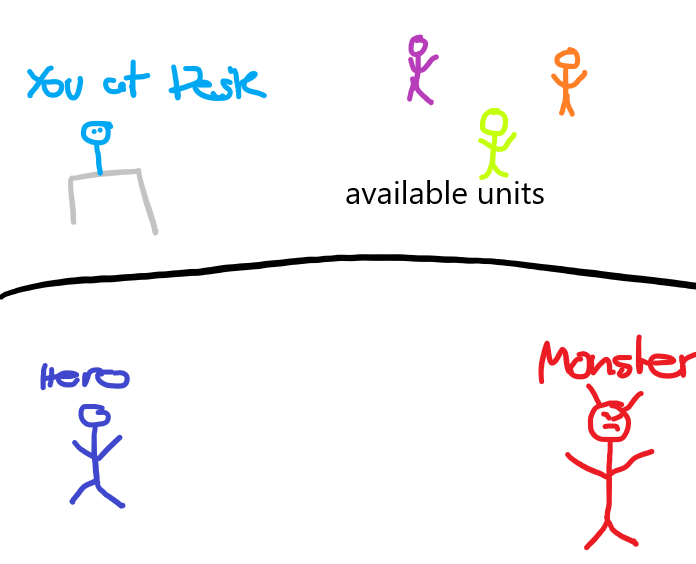 You at Desk
available units
Hero
Monster